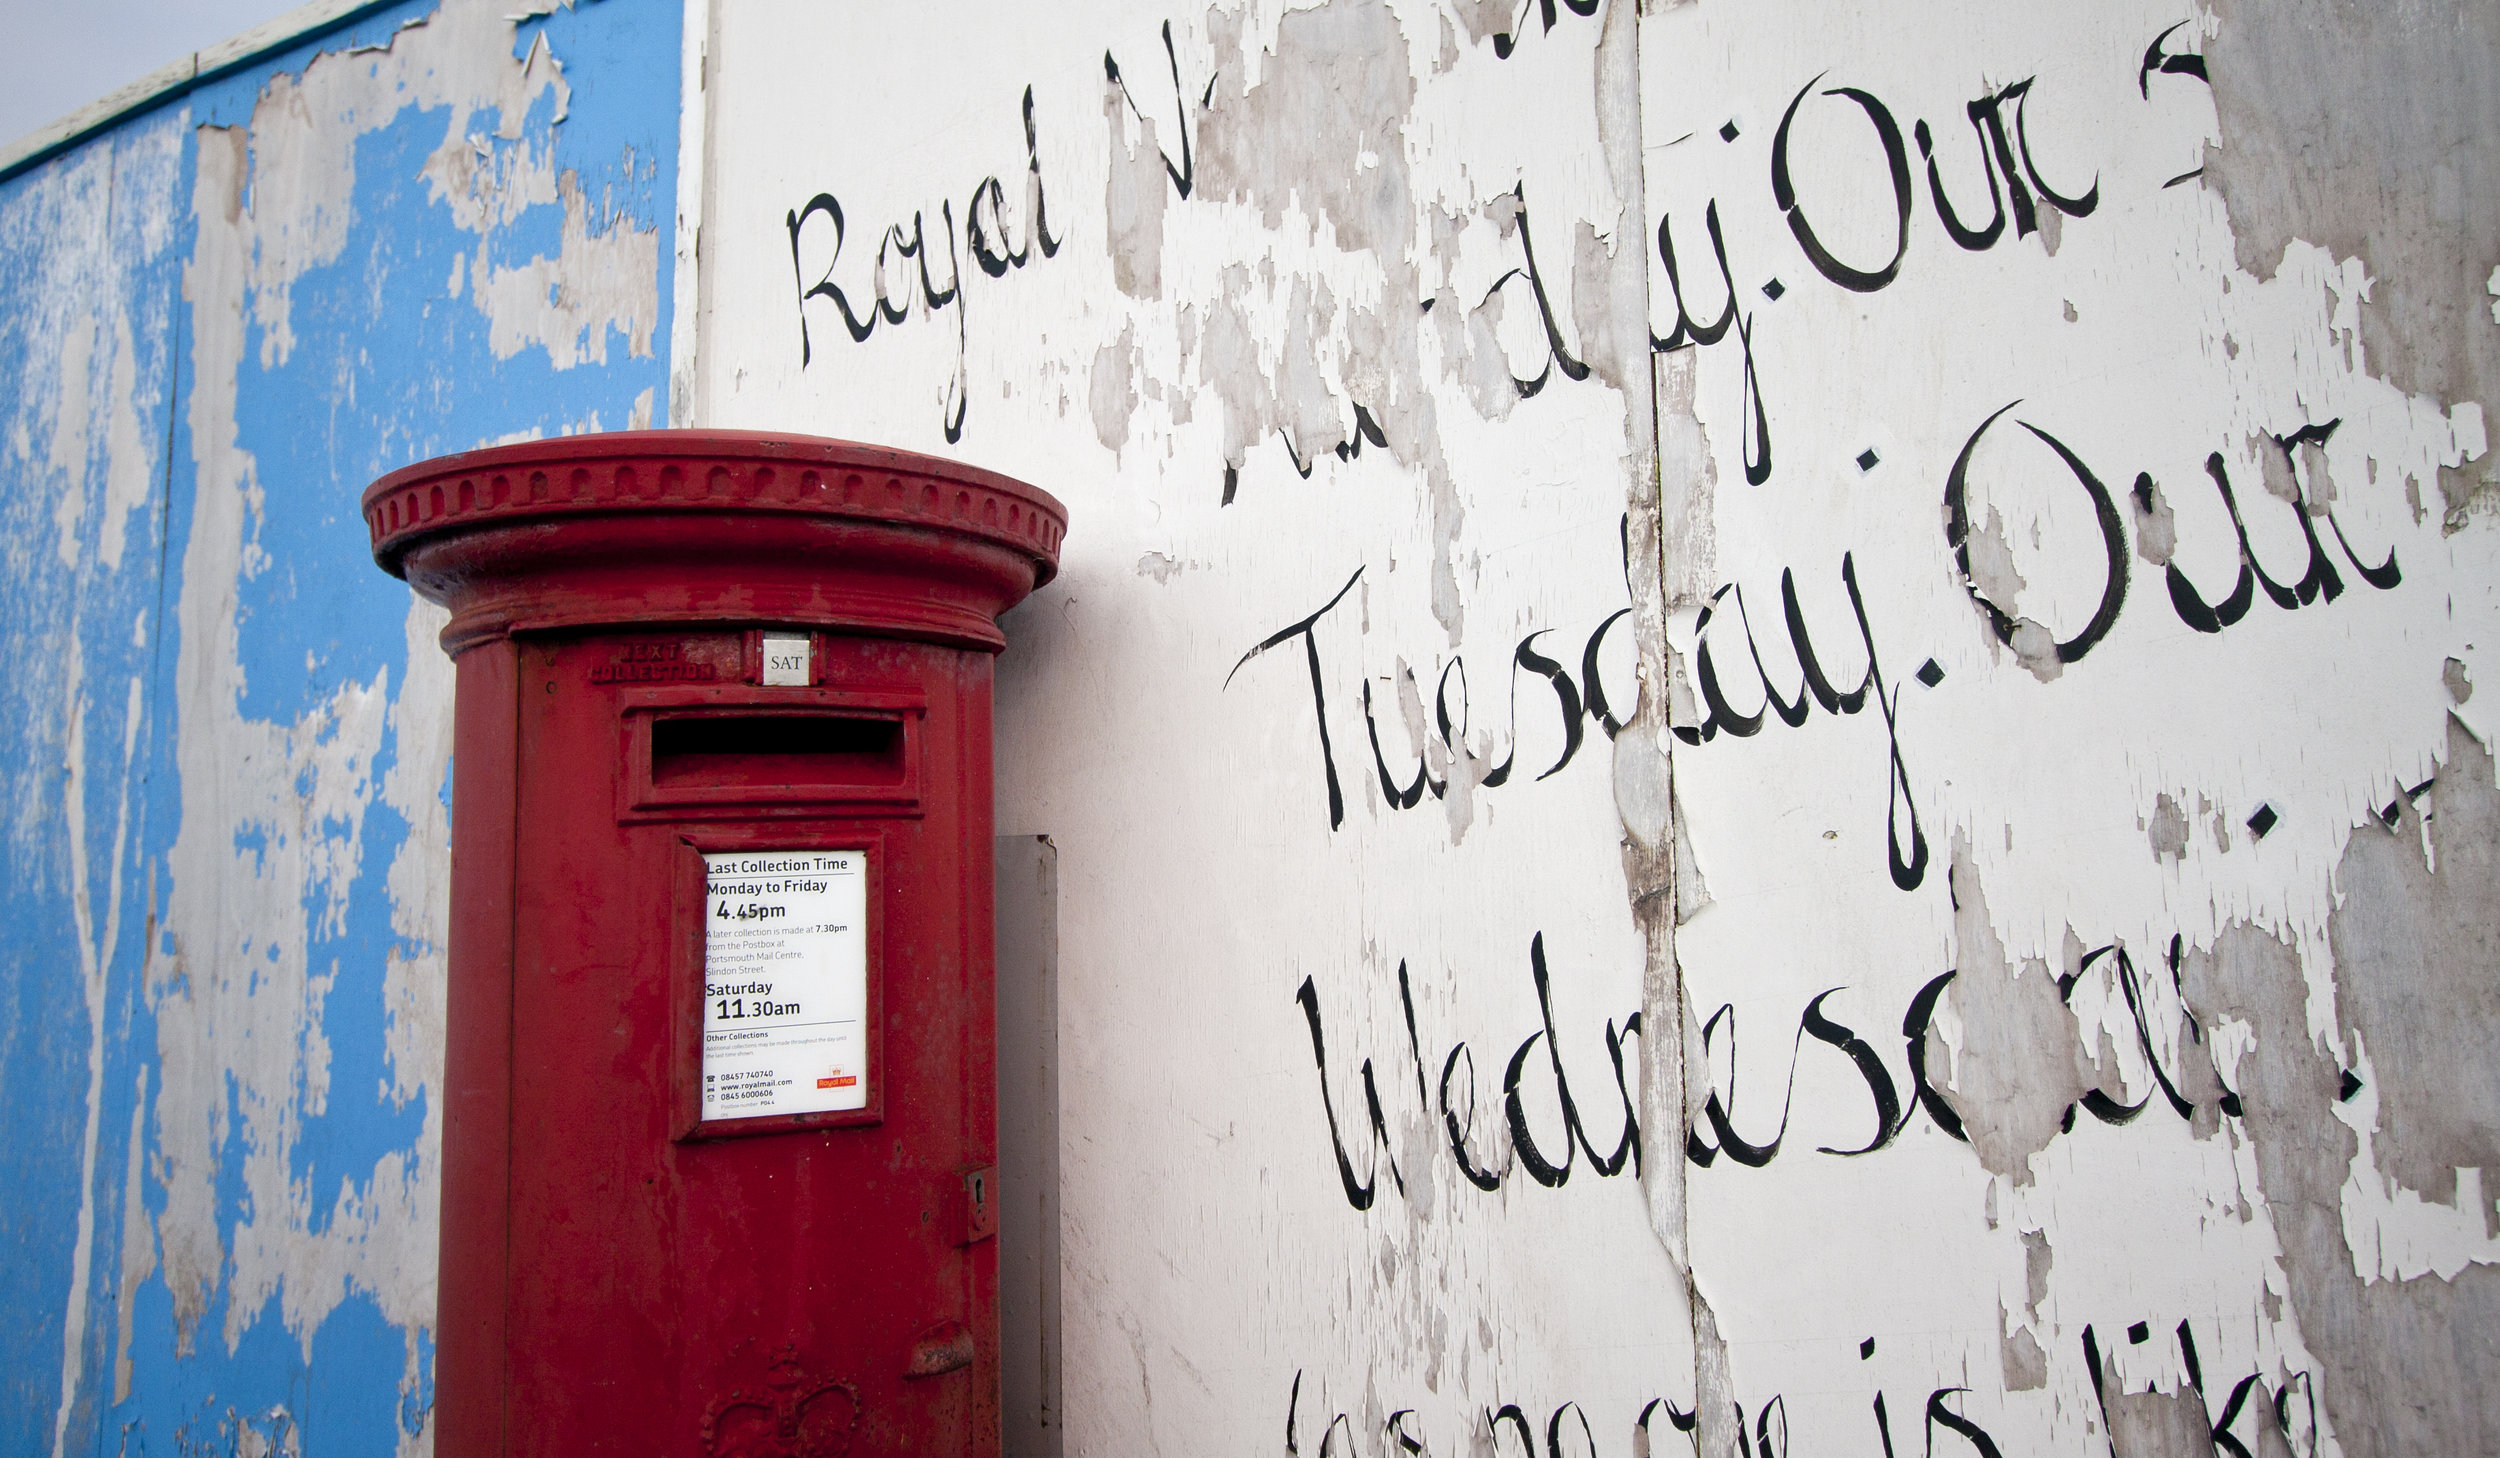 Royal
day. Our
Tuesday. Our
Wednesday.
is like
NEXT
COLLECTION
SAT
Last Collection Time
Monday to Friday
4.45pm
A later collection is made at 7.30pm
from the Postbox at
Portsmouth Mail Centre,
Slindon Street.
Saturday
11.30am
Other Collections
Additional collections may be made throughout the day until
the last time shown.
08457 740740
www.royalmail.com
0845 6000606
Postbox number PO4 4
Royal Mail